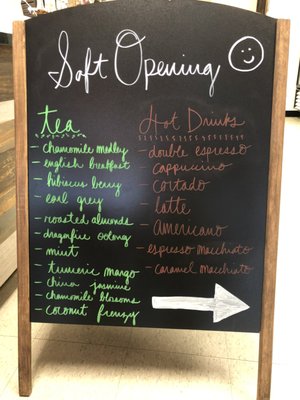 Soft Opening
tea
- chamomile medley
- english breakfast
- hibiscus berry
- earl grey
- roasted almonds
- dragonfire oolong
- mint
- tumeric mango
- china jasmine
- chamomile blossoms
- coconut frenzy
Hot Drinks
- double espresso
- cappuccino
- cortado
- latte
- americano
- espresso macchiato
- caramel macchiato